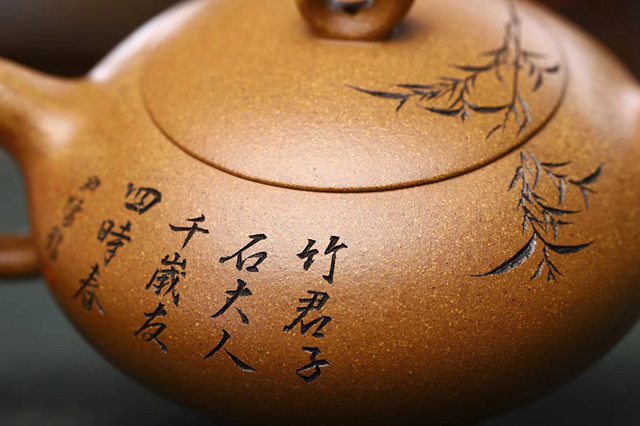 竹君子
石大人
千歲友
四時春